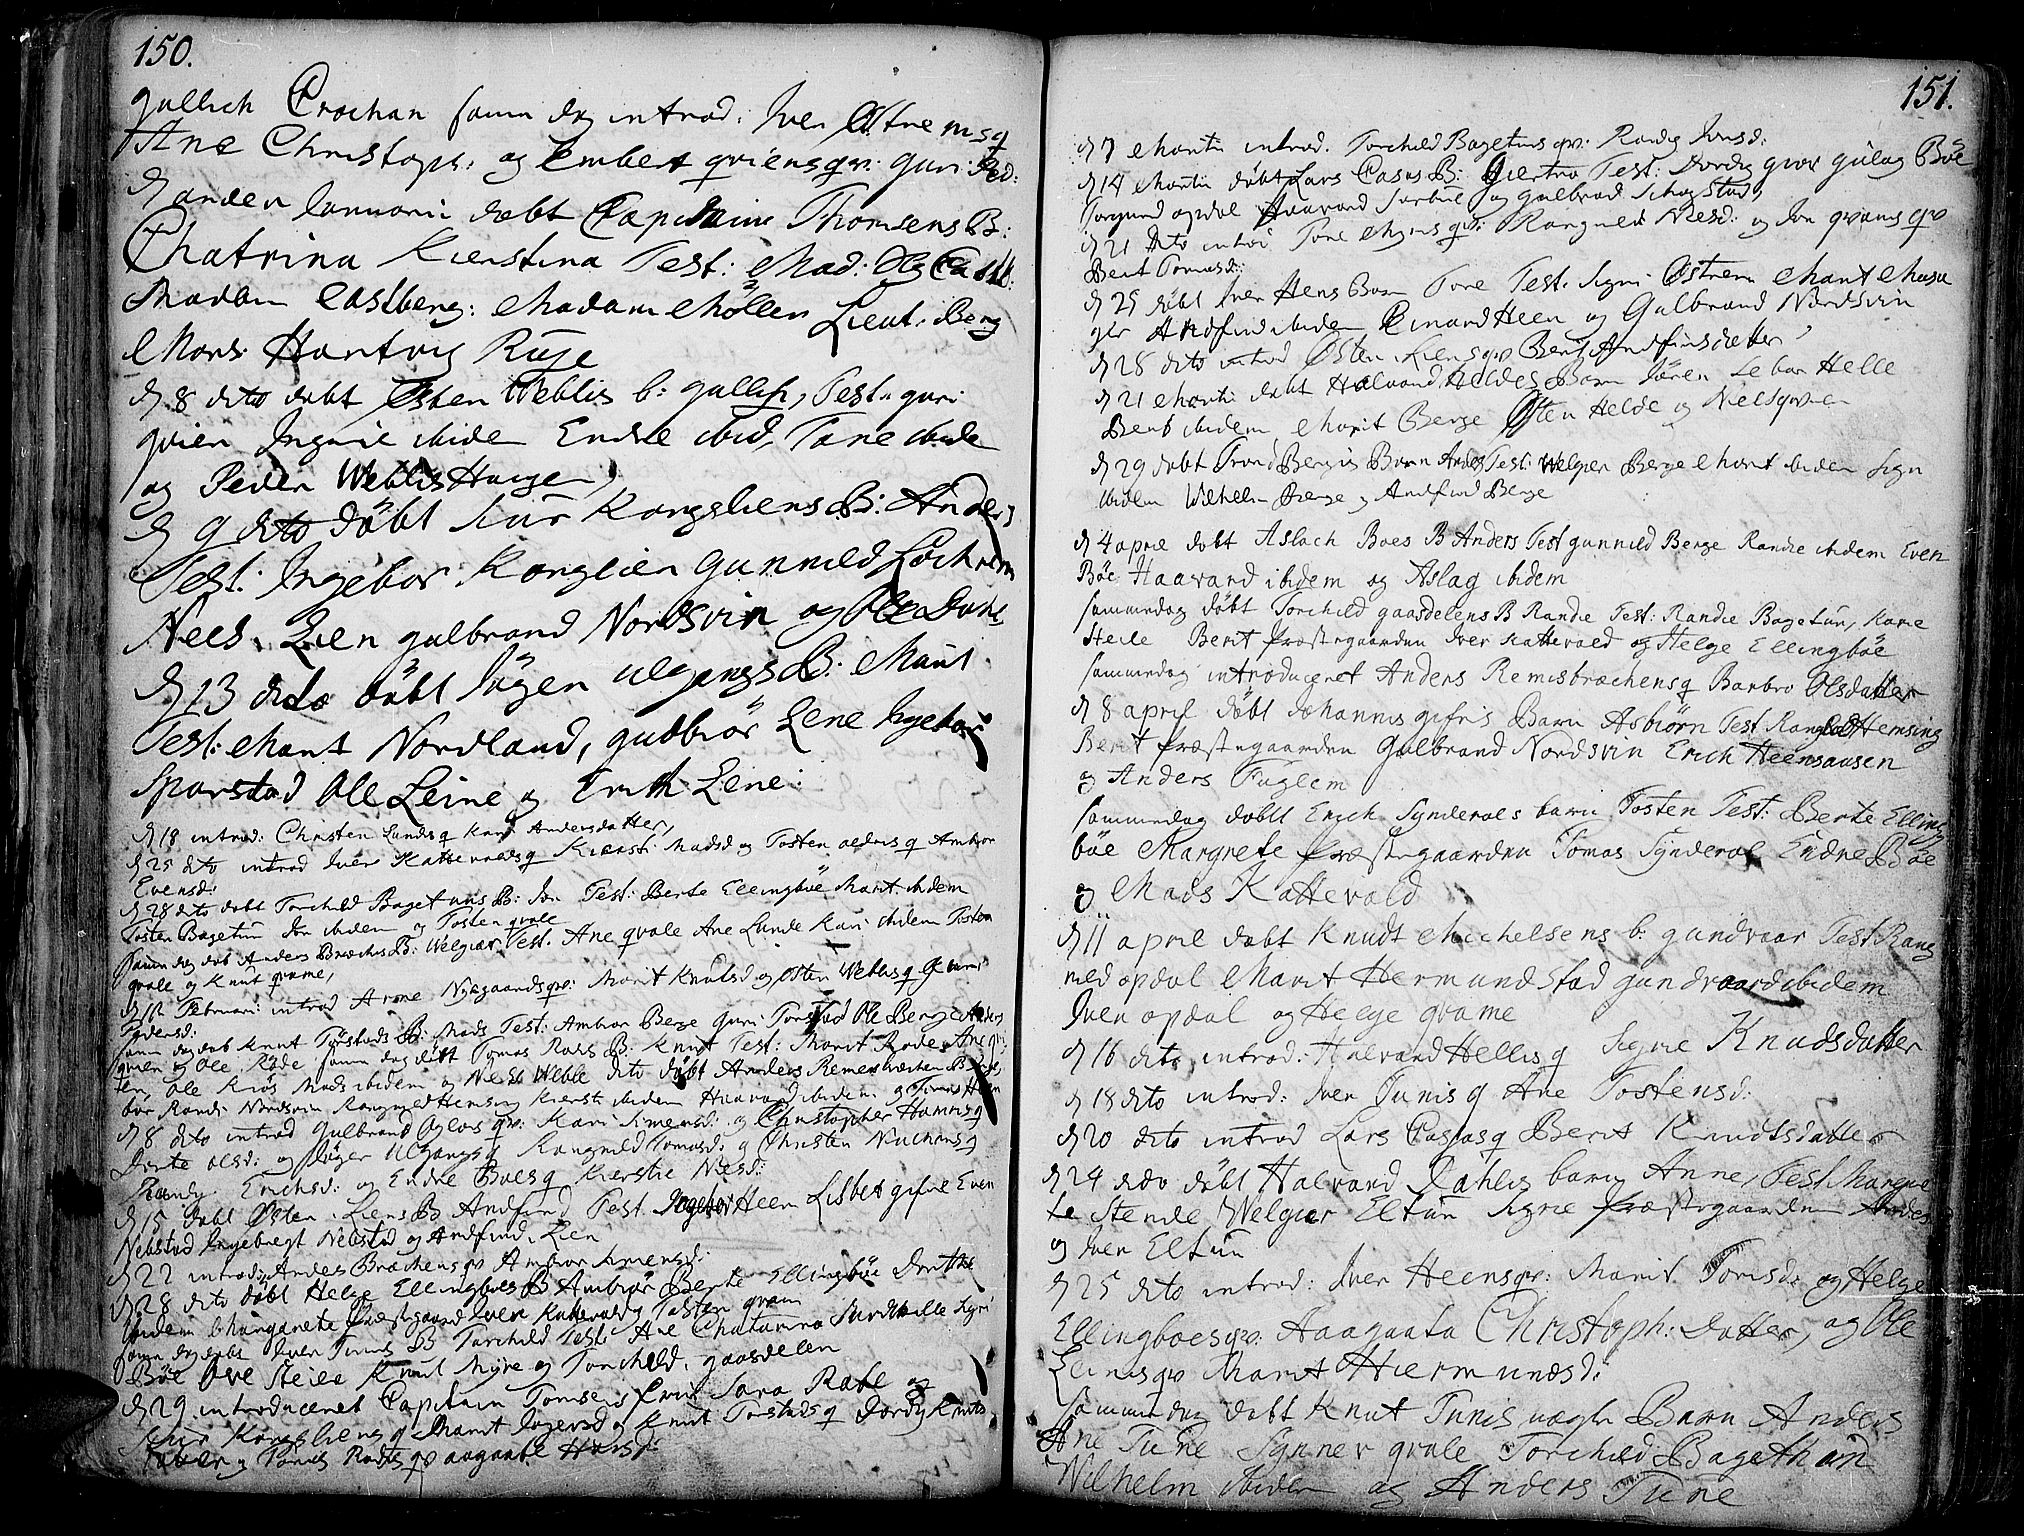 150.
Gullich Crochan samme dag introd: Iver Østrems q
Ane Christoph: og Embert qviens qv: guri Ped:
d anden Januarii døbt Capitaine Thomsens B:
Chatrina Kierstina Test: Mad:
Madam Castberg: Madame Møller Lieut: Berg
Mons: Hartvig Ruge
d 8 dito døbt Østen Weblis b: gullich, Test: guri
qvien Ingrie ibidem Endre ibid, Tore ibide
og Peder Weblis Hougen,
d 9 dito døbt Siur Kongsliens B: Anders
Test: Ingebor Konglien Gunnild
Neels Lien gulbrand Nordsvin og Ole
d 13 dito døbt Jøgen Ulgangs B: Marit
Test: Marit Nordland, gudbiør Lene Ingebor
Sparstad Ole Leine og Erich Lene:
d 18 introd: Christen Lunds q Kari Andersdatter,
d 25 dito introd Iver Kattevolds q Kiersti Madsd og Tosten q Ambior
Evensd:
d 28 dito døbt Torchild Bagetuns B: Jon Test: Berte Ellingbøe Marit ibidem
Tosten Bagetun Jon ibidem og Tosten qvale
samme dag døb Anders Bræchis B: Welgier Test. Ane qvale Ane Lunde Kari ibidem Tosten
qvale og Knut qvame,
Februari introd Arne Nygaards qv: Marit Knutsd og Østen Weblis q
Pedersd:
samme dag døb Knut Tørstads B: Mads Test: Ambior Berge Guri Torstad Ole Berge Anders
qvien og Ole Røde samme dag døbt Tomas Rødes B: Knut Test: Marit Rødes Ane
Ole Mads ibidem og Niels Weble dito døbt Anders Remesbræchen B
bor Randi Nordsvin Rangnild Hemsing Kiersti ibidem Haavard ibidem og Tomas
d 8 dito introd Gulbrand qv: Kari Simensd: og Christopher Hammis q
Dorte Olsd: og Jøger Ulgangs q Rangnild Tomasd: og Christen q
Randy Erichsd: og Endre Boes q Kierstie Nilsd:
d 15 døbt Østen Liens B Andfind Test Ingebor Heen Lisbet gifre Even
Nebstad Ingebregt Nebstad og Andfind Lien
d 22 introd: Anders Bræchens qv Ambior Simensd:
d 28 dito døbt Helge Ellingboes B Ambiør Berte Ellingbøe Dorthe
ibidem Margarete Præstegaard Iven Kattevold Tosten qvam
samme dag døbt Iver Tunis B Torchild Test: Ane Chatarina Sigri
Bøe Ove Steien Knut Myre og Torchild gaasdelen
d 29 introduceret Capitain Tomsens Frue Sara Rabe og
Siur Kongsliens q Marit Ingersd og Knut Torstads q Dordy Knuts
datter og Tomas Rødes qv aagaate Havsd:
151.
d 7 Martii introd. Torchild Bagetuns qv: Randig Jonsd:
d 14 Martii døbt Lars Casas B: Giertrø Test: Dordig qvov Gulag Bøe
Torgund opdal Haavard og gulbrand Schogstad,
d 21 dito introd Tore Myris qv: Rangnild Nilsd: og Jon qvams qv
Berit Tomasd:
d 25 døbt Iver Hens Barn Tore Test. Sigri Østrem Marit
ger Andfind ibidem Einard Heen og Gulbrand Nordsvin
d 28 dito introd Østen Liens qv Berit Andfinsdatter,
d 21 Martii døbt Halvard Heldes Barn Jören Helle
Berit ibidem Marit Berge Østen Helde og Niels qvien
d 29 døbt Trond Bergis Barn Anders Test: Welgier Berge Marit ibiden Sign
ibidem Wilhelm Berge og Andfind Berge
d 4 april døbt Aslach Boes B Anders Test gunnild Berge Randie ibidem Even
Bøe Haavard ibidem og Aslag ibidem
sammedag døbt Torchild gaasdelens B Randie Test: Randie Bagetun, Karie
Helle Berit Præstegaarden Iver Kattevold og Helge Ellingbøe
sammedag introduceret Anders Remisbræchens q Barbro Olsdatter
d 8 april døbt Johannis gifris Barn Asbiørn Test Rangnild Hemsing
Berit Præstegaarden Gulbrand Nordsvin Erich Heensausen
og Anders Fuglem
sammedag døbt Erich Synderols barn Tosten Test: Berte Elling
bøe Margrete Præstegaarden Tomas Synderol Endre Bøe
og Mads Kattevold
d 11 april døbt Knudt Michelsens b: gundvaar Test Rang
nild opdal Marit Hermundstad gundvaard ibidem
Iven opdal og Helge qvame
d 16 dito introd: Halvard Hellis q Signe Knudsdatter
d 18 dito introd: Iver Tunis q Ane Tostensd:
d 20 dito introd Lars Casas q Berit Knudtsdatter
d 24 dito døbt Halvard Dahlis barn Anne, Test Margre
te Stende Welgier Eltun Signe Præstegaarden Anders
og Iven Eltun
d 25 dito introd: Iver Heens qv: Marit Torisd: og Helge
Ellingboes qv: Aagaata Christoph: datter, og Ole
Leinis qv Marit Hiermunsd:
sammedag døbt Knut Tunis uægte Barn Anders
Ane Tune Synner qvale Torchild Bagethun
Wilhelm ibidem og Anders Tune